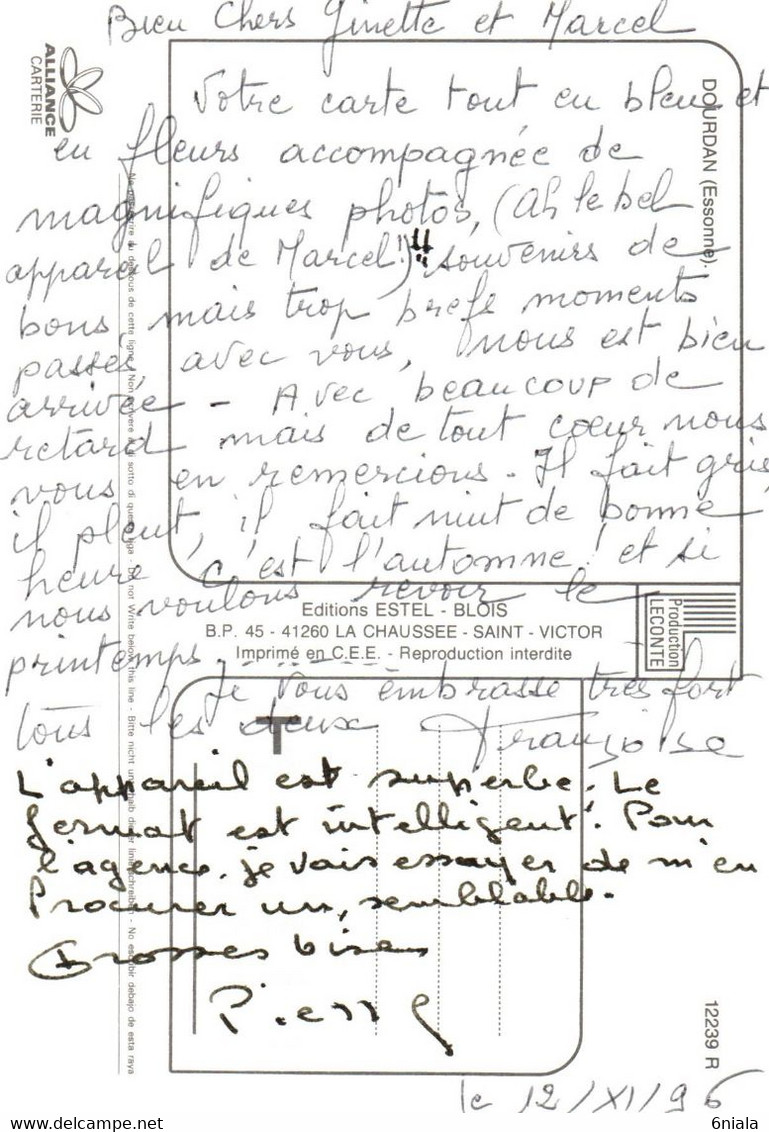 Bien Chers Ginette et Marcel
Votre carte tout en bleu et
en fleurs accompagnée de
magnifiques photos, (Ah le bel
appareil de Marcel !)!! souvenirs de
bons mais trop brefs moments
passés avec vous, nous est bien
arrivée - Avec beaucoup de
retard mais de tout coeur nous
vous en remercions - Il fait gris,
il pleut, il fait nuit de bonne
heure, c'est l'automne ! et si
nous voulons revoir le
printemps -------
Je vous embrasse très fort
tous les deux Françoise
L'appareil est superbe. Le
format est intelligent. Pour
l'agence, je vais essayer de m'en
Procurer un, semblable.
Grosses bises
Pierre
le 12/XI/96
ALLIANCE
CARTERIE
DOURDAN (Essonne).
Editions ESTEL - BLOIS
B.P. 45 - 41260 LA CHAUSSEE - SAINT - VICTOR
Imprimé en C.E.E. - Reproduction interdite
Production
LECONTE
T
12239 R
au dessous de cette ligne - Non scrivere al di sotto di questa riga - Do not Write below this line - Bitte nicht unterhalb dieser linie schreiben - No escribir debajo de esta raya
www.delcampe.net
6niala